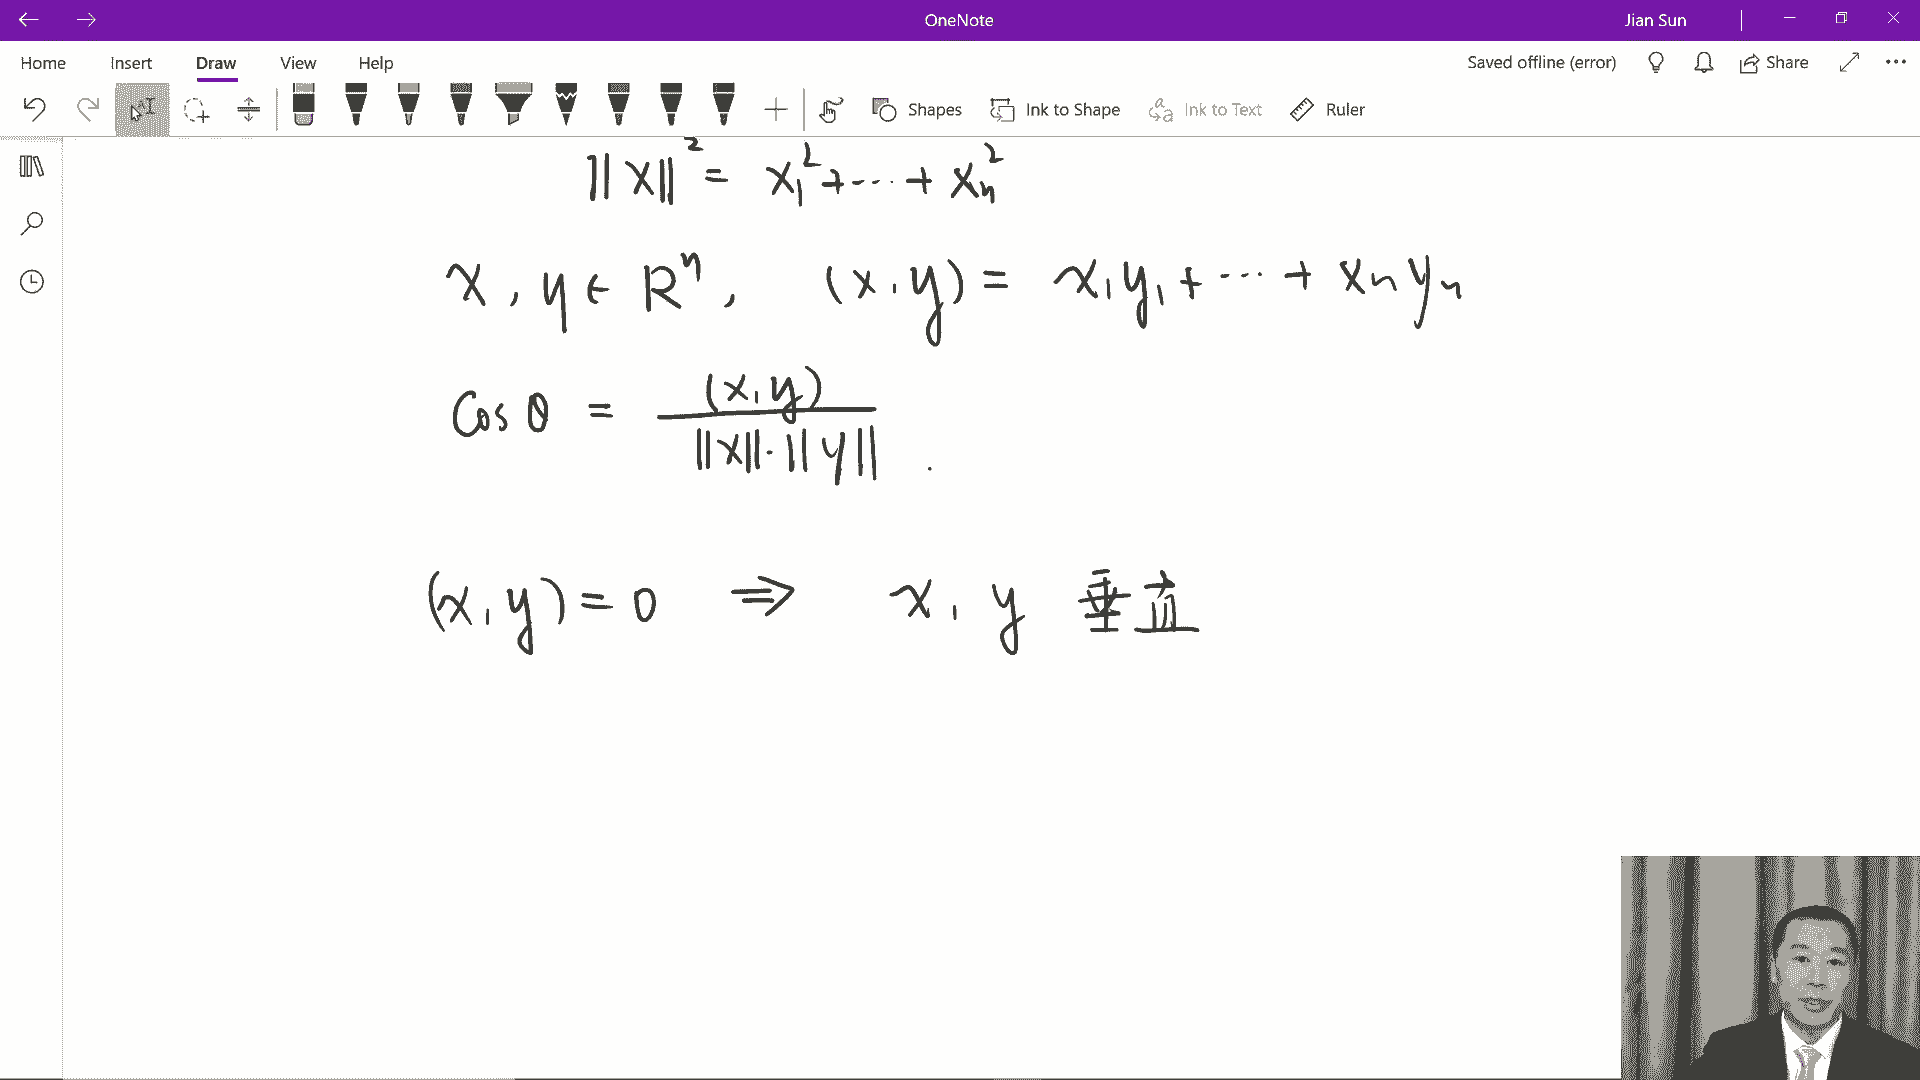 OneNote
Jian Sun
Home Insert Draw View Help
Saved offline (error) Share
Shapes Ink to Shape Ink to Text Ruler
||x||² = x₁² + ··· + xₙ²
x, y ∈ Rⁿ, (x, y) = x₁y₁ + ··· + xₙyₙ
Cos θ = (x, y) / ||x|| · ||y|| .
(x, y) = 0 ⇒ x, y 垂直